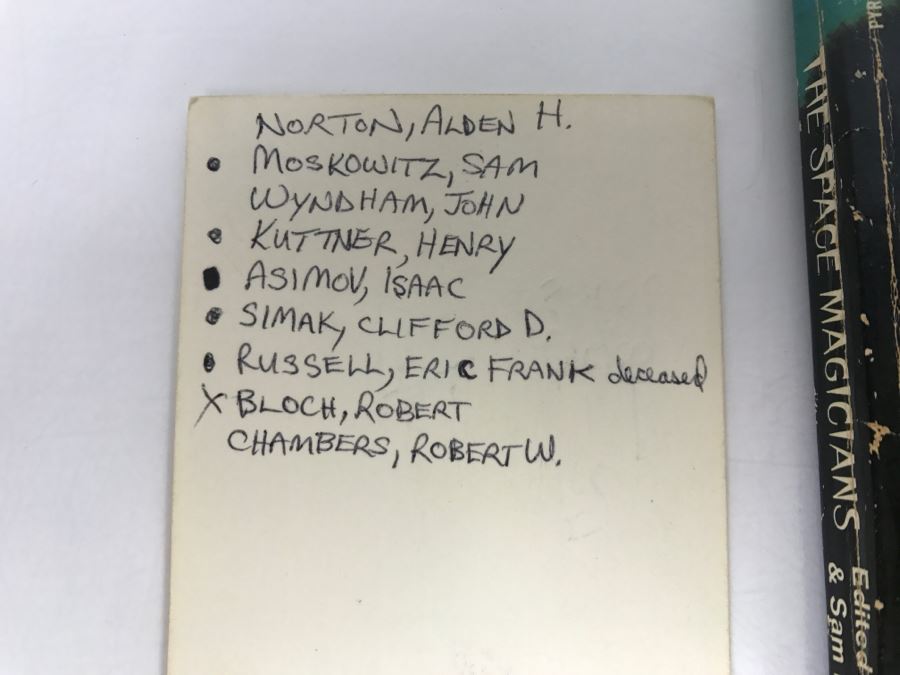 NORTON, ALDEN H.
• MOSKOWITZ, SAM
WYNDHAM, JOHN
• KUTTNER, HENRY
• ASIMOV, ISAAC
• SIMAK, CLIFFORD D.
• RUSSELL, ERIC FRANK deceased
X BLOCH, ROBERT
CHAMBERS, ROBERT W.
PYR
THE SPACE MAGICIANS
Edited
& Sam